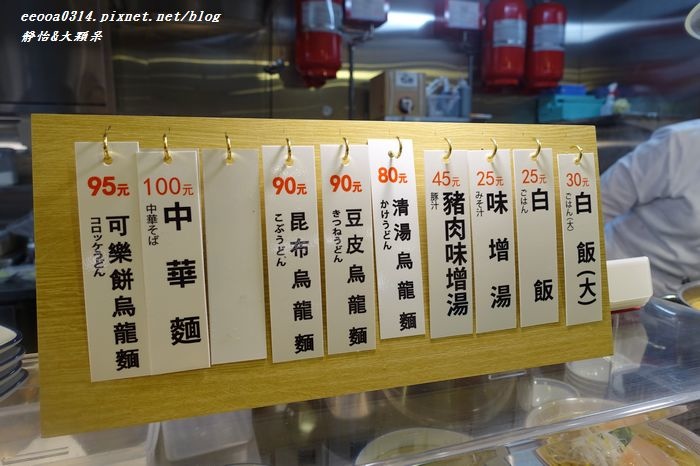 eeooa0314.pixnet.net/blog
靜怡&大顆呆
95元
コロッケうどん
可樂餅烏龍麵
100元
中華そば
中華麵
90元
こぶうどん
昆布烏龍麵
90元
きつねうどん
豆皮烏龍麵
80元
かけうどん
清湯烏龍麵
45元
豚汁
豬肉味增湯
25元
みそ汁
味增湯
25元
ごはん
白飯
30元
ごはん(大)
白飯(大)